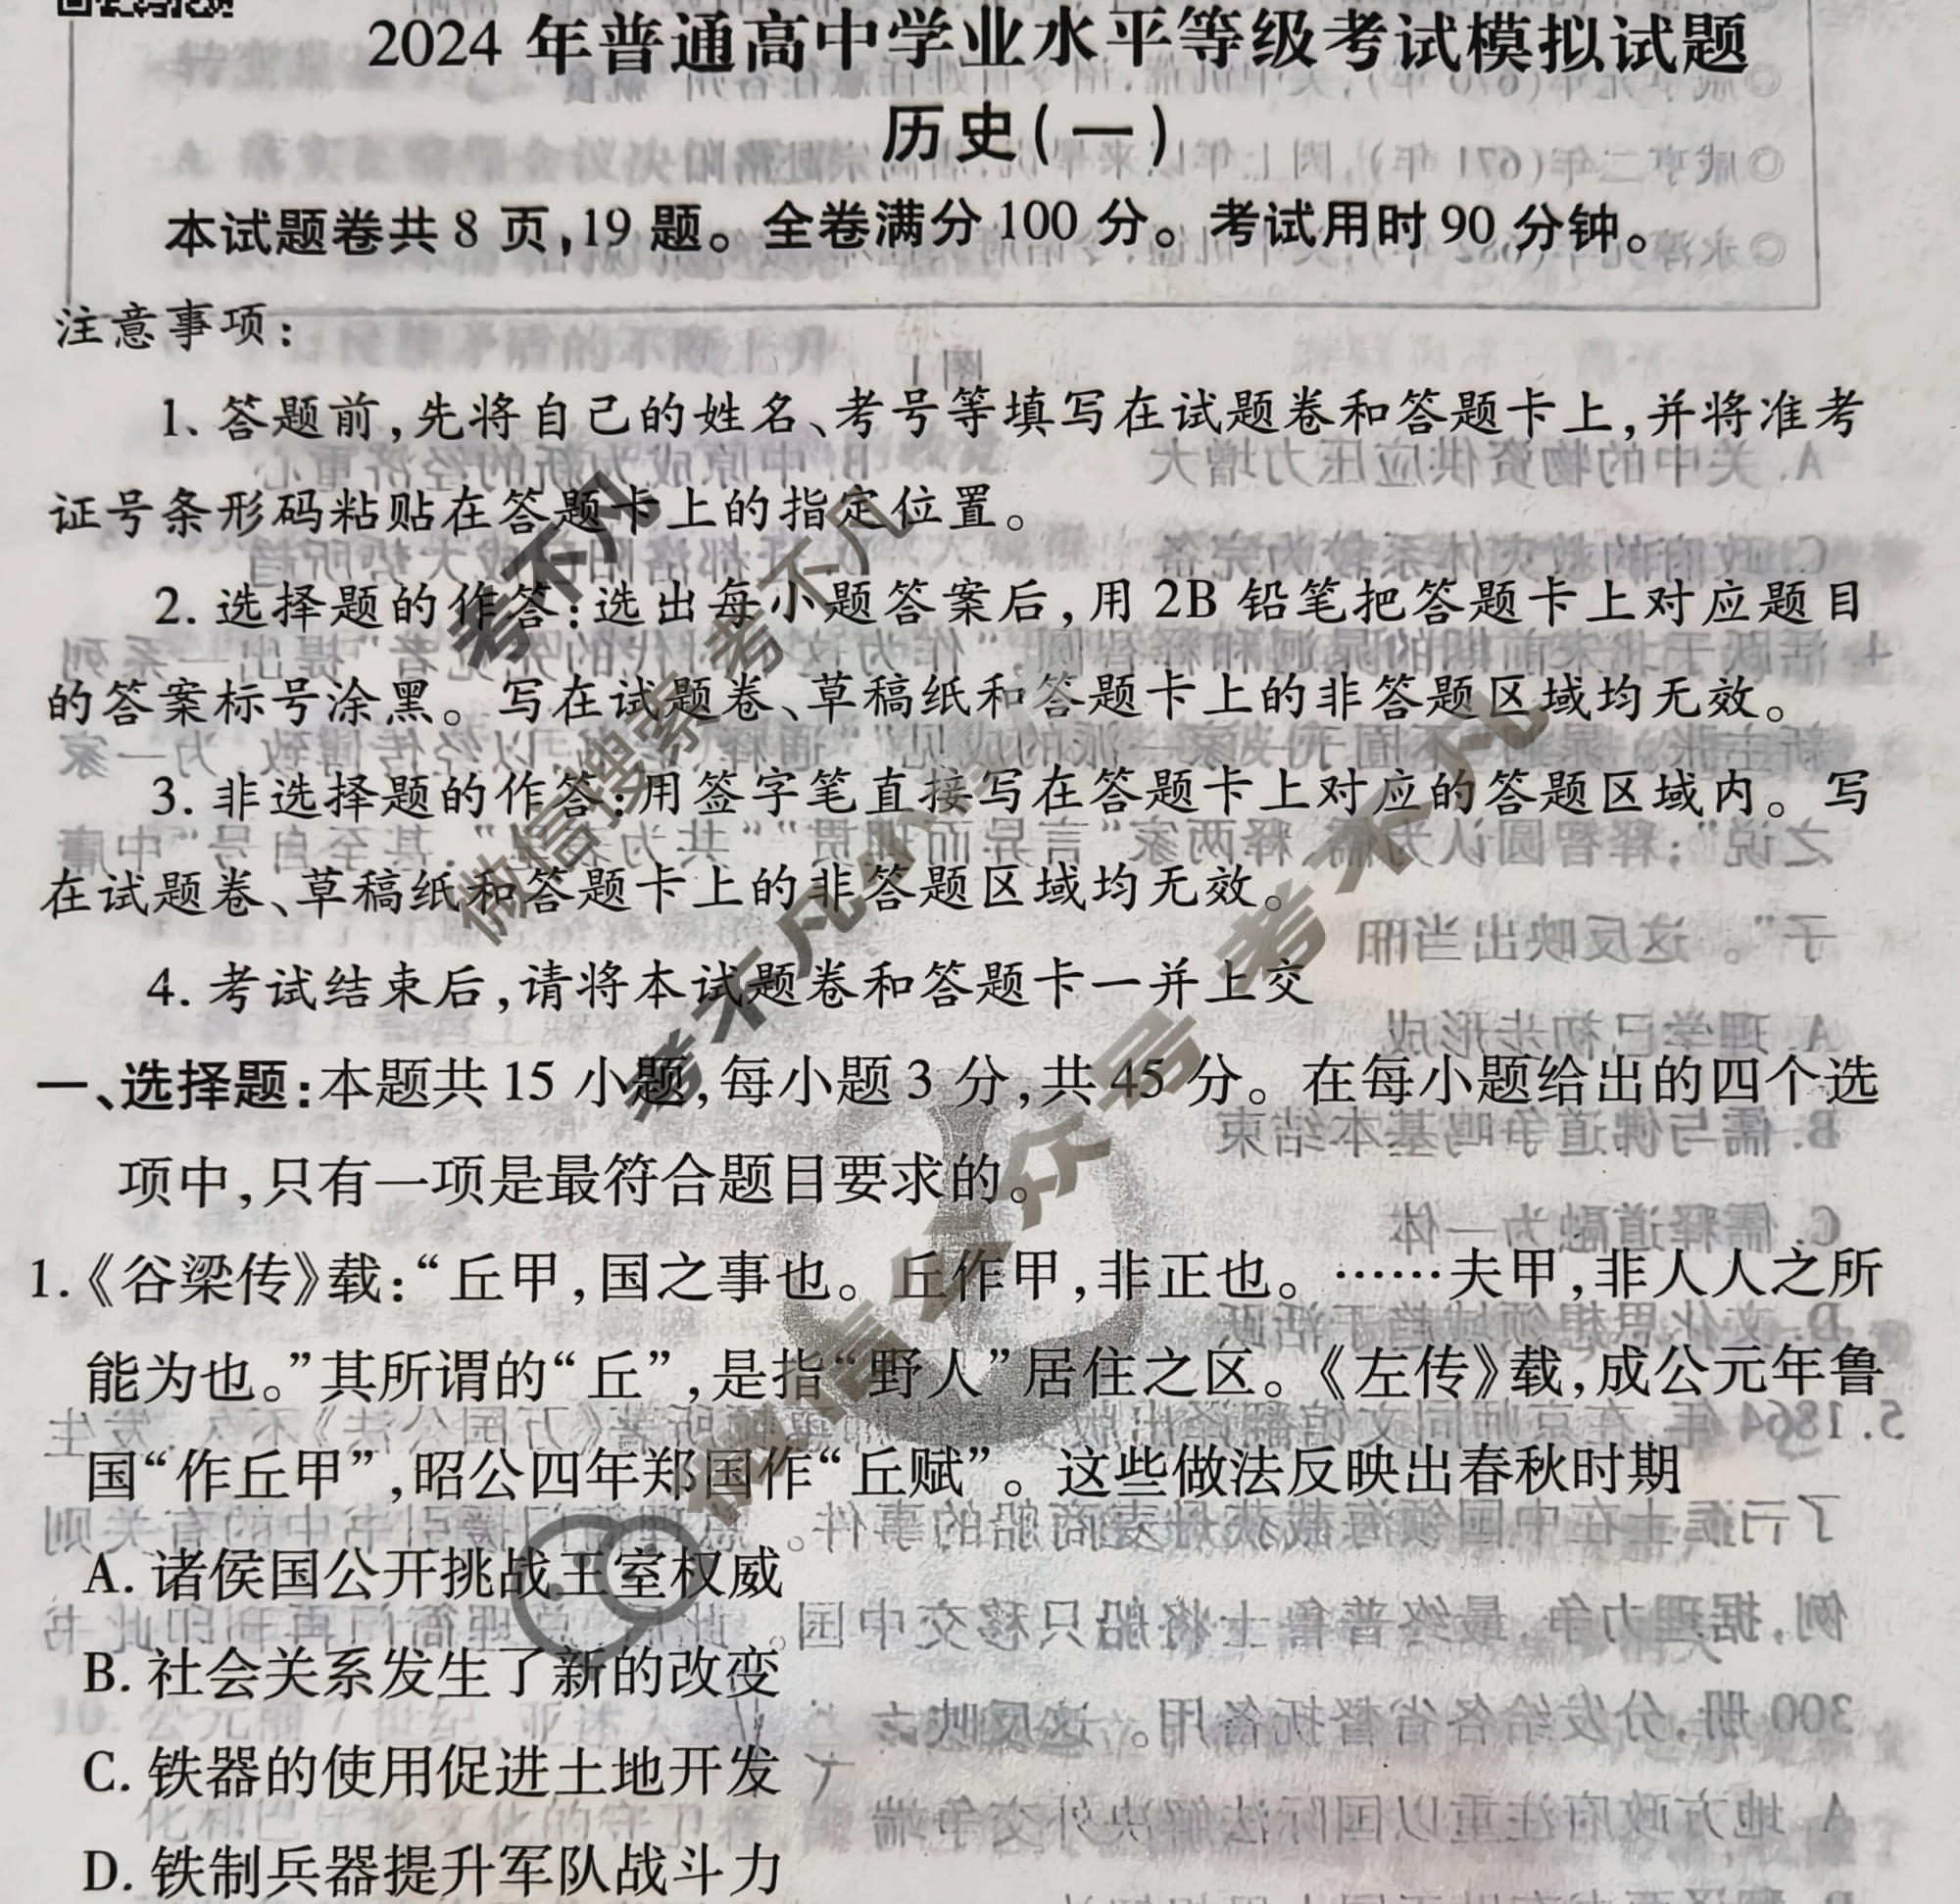 2024 年普通高中学业水平等级考试模拟试题
历史(一)
本试题卷共 8 页,19 题。全卷满分 100 分。考试用时 90 分钟。
注意事项:
1、答题前,先将自己的姓名、考号等填写在试题卷和答题卡上,并将准考
证号条形码粘贴在答题卡上的指定位置。
2. 选择题的作答:选出每小题答案后,用 2B 铅笔把答题卡上对应题目
的答案标号涂黑。写在试题卷、草稿纸和答题卡上的非答题区域均无效。
3. 非选择题的作答:用签字笔直接写在答题卡上对应的答题区域内。写
在试题卷、草稿纸和答题卡上的非答题区域均无效。
4. 考试结束后,请将本试题卷和答题卡一并上交
一、选择题:本题共 15 小题,每小题 3 分,共 45 分。在每小题给出的四个选
项中,只有一项是最符合题目要求的。
1.《谷梁传》载:“丘甲,国之事也。丘作甲,非正也。……夫甲,非人人之所
能为也。”其所谓的“丘”,是指“野人”居住之区。《左传》载,成公元年鲁
国“作丘甲”,昭公四年郑国作“丘赋”。这些做法反映出春秋时期
A. 诸侯国公开挑战王室权威
B. 社会关系发生了新的改变
C. 铁器的使用促进土地开发
D. 铁制兵器提升军队战斗力
考不凡
微信搜索 考不凡
微信公众号 考不凡